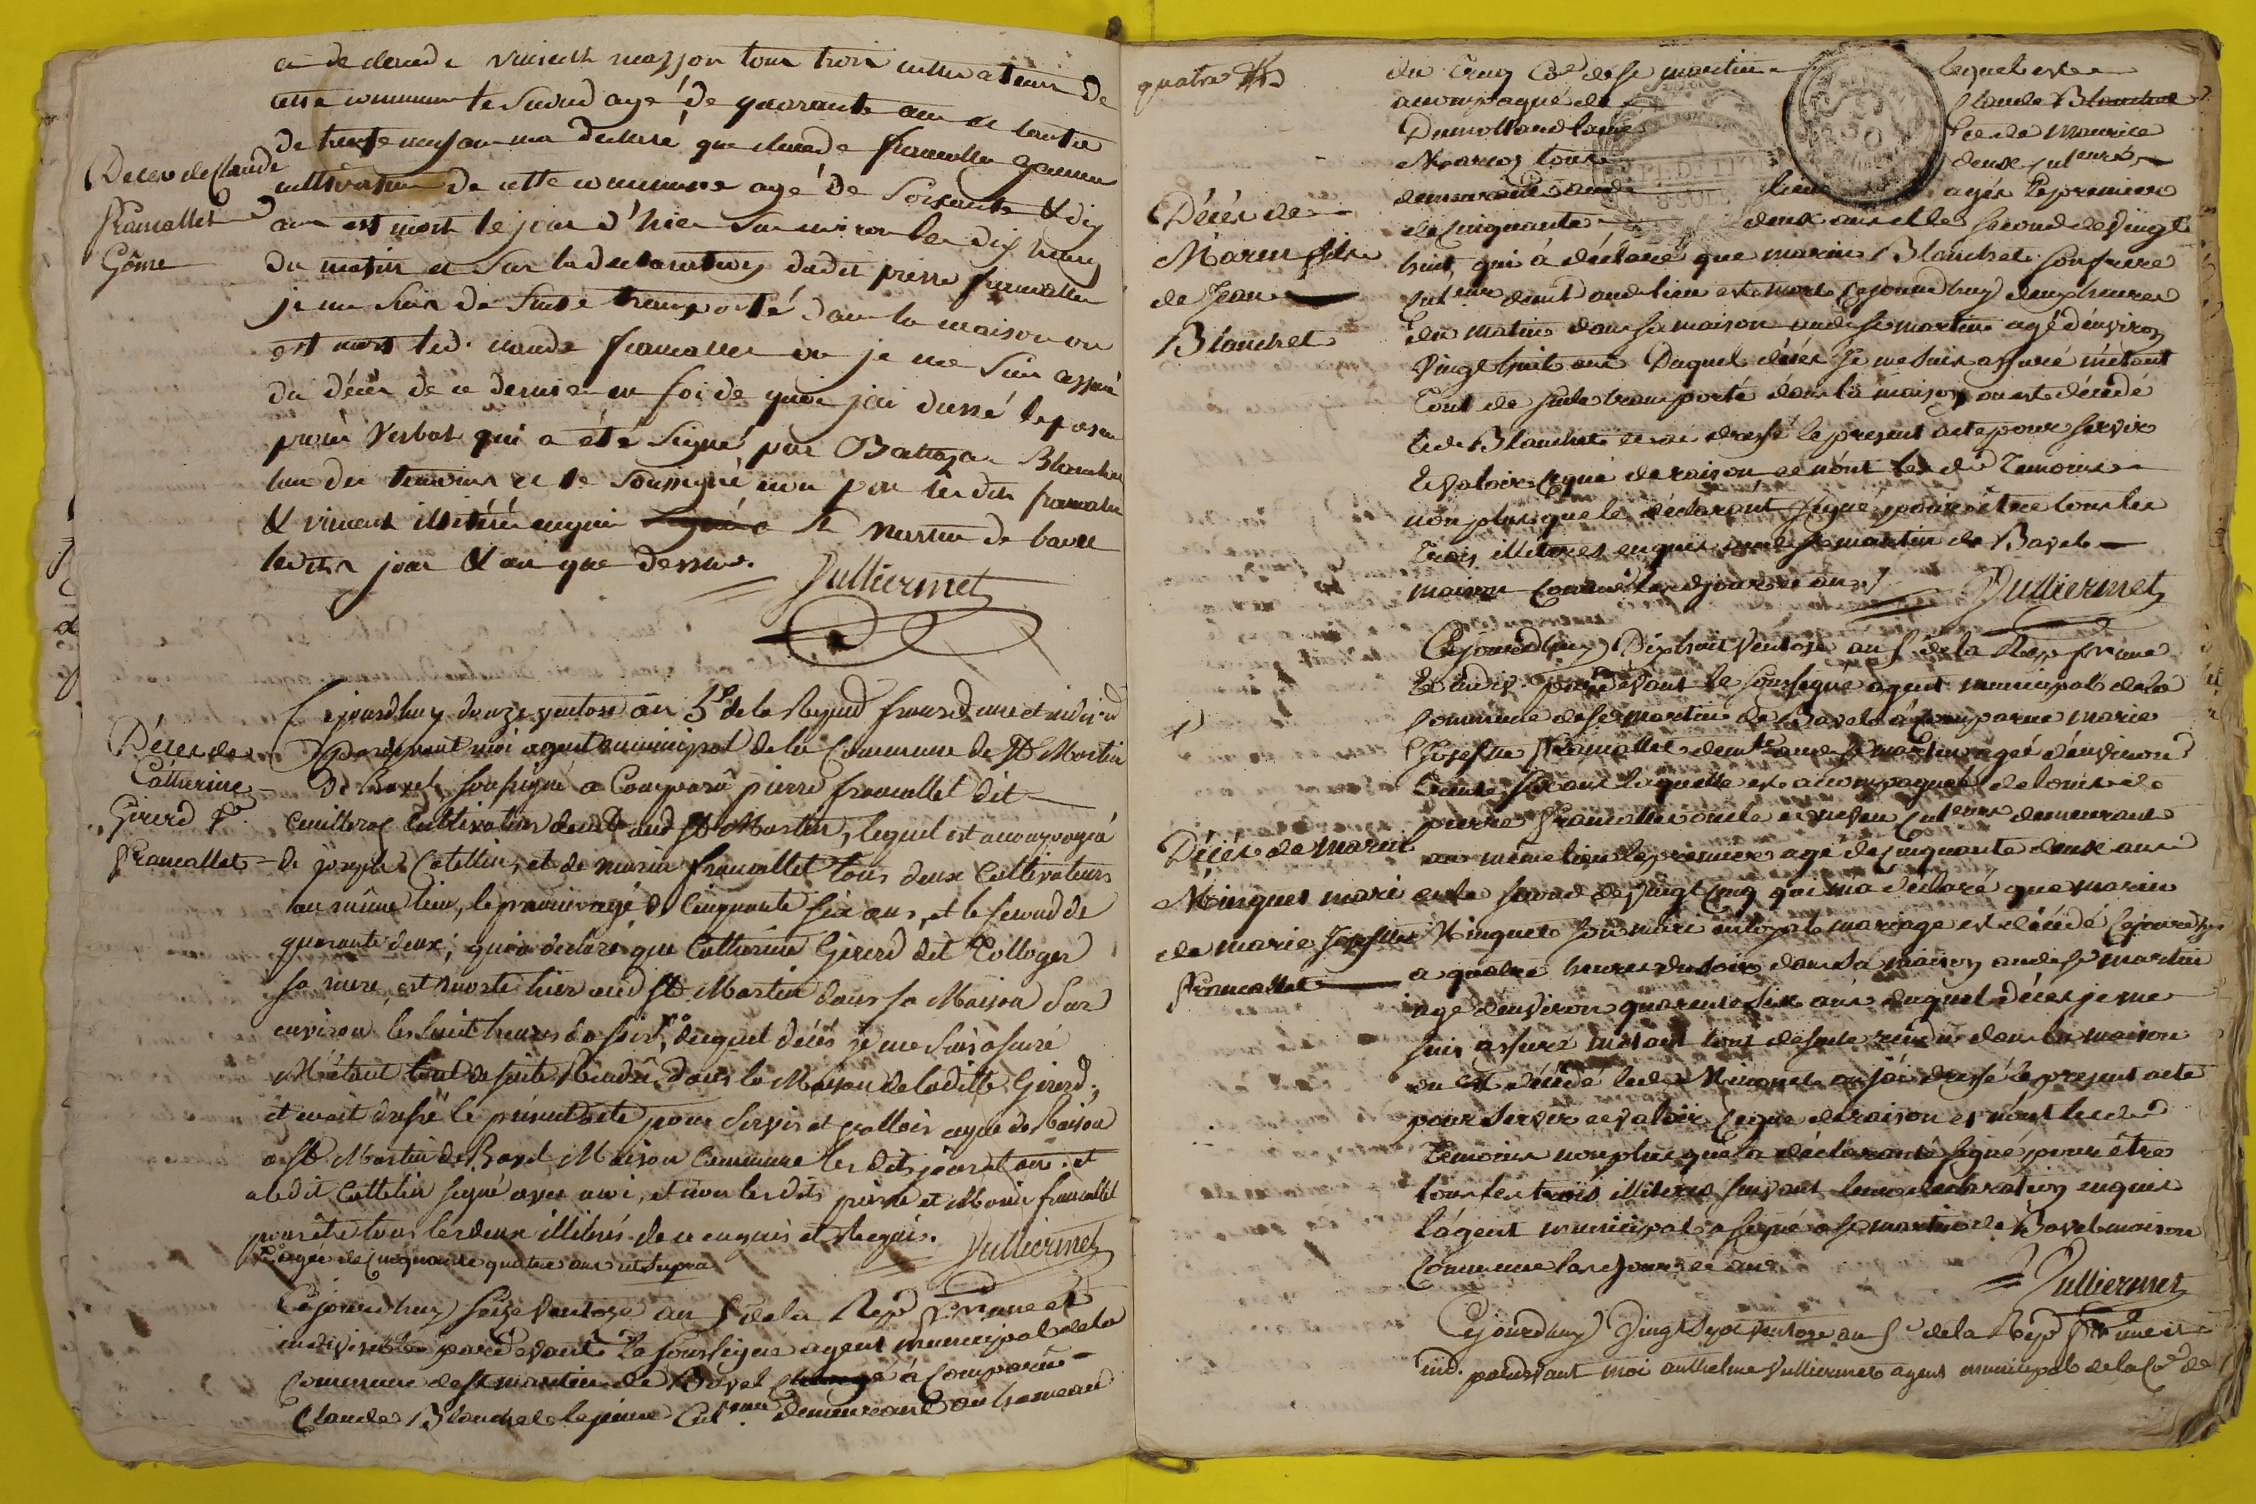 a de claude vincent masson tous trois cultivateurs de
cette commune le second agé de quarante ans et lautre
de trente neuf ans ma declaré que claude framallet gamen
Deces de Claude
framallet
Gôme
cultivateur de cette commune agé de soixante & dix
ans est mort le jour d'hier sur environ les dix heures
du matin et sur la declaration dudit pierre framallet
je me suis de suite transporté dans la maison ou
est mort led. claude framallet ou je me suis assuré
du décès de ce dernier en foi de quoi jai dressé le present
procès verbal qui a été signé par Baltaza Blanchet
lun des temoins et le soussigné non par lesdits framallet
& vincent illitérés enquis St Martin de bavel
lesdits jour & an que dessus.
Vulliermet
Décès de
Catherine
Girerd fe.
framallet
Cejourdhuy douze ventose an 5e de la Repub francd une et indivis
pardevant moi agent municipal de la Commune de St Martin
de Bavel soussigné a Comparû pierre framallet dit
cuilleroz Cultivateur demt aud St Martin, lequel est accompagné
de joseph Catellin, et de marin framallet tous deux Cultivateurs
au même lieu, le premier agé de Cinquante six ans, et le second de
quarante deux, qui a declaré que Catherine Girerd dit Colloger
sa mere, est morte hier aud St Martin dans sa Maison sur
environ les huit heures du soir, duquel décès je me suis assuré
M'étant tout de suite Rendu dans la Maison de laditte Girerd,
et avoir dressé le présent acte pour servir et valloir ce que de Raison
a St Martin de Bavel Maison Commune les dits jour et an. et
a ledit Cattelin signé avec moi, et non les dits pierre et Marin framallet
pour être tous les deux illitérés de ce enquis et Requis.
Vulliermet
agée de Cinquante quatre ans ut supra
Cejourdhuy seize Ventose an 5 de la Rep frc une et
indivisible pardevant le soussigné agent municipal de la
Commune de St martin de Bavel à comparu
Claude Blanchet le jeune Culteur demeurant au hameau
quatre
du Cruy Coe de St martin lequel est
accompagné de Claude Blanchet
Dumolland laine et de Maurice
Marcoz tous deux culteurs
demeurants aud lieu agés le premier
de cinquante deux ans et le second de vingt
Décès de
Marin fils
de Jean
Blanchet
huit, qui à déclaré que marin Blanchet son frere
culteur demt aud lieu est mort cejourdhuy deux heures
du matin dans sa maison aud St martin agé denviron
Vingt huit ans Duquel décès Je me suis assuré métant
tout de suite transporté dans la maison ou est décédé
led. Blanchet et ai dressé le present acte pour servir
et valoir ceque de raison et nont lesd temoins
non plus que le déclarant signé pour être tous les
trois illitéres enquis aud St martin de Bavel
maison Commune lesd jour et an
Vulliermet
Cejourdhuy Dix huit Ventose an 5 de la Rep fr une
et indiv. pardevant le soussigné agent municipal de la
commune de St martin de Bavel à comparue marie
Josephte framallet demte aud St martin agée denviron
trente six ans laquelle est accompagnée de louis et de
pierre framallet oncle et neveu culteurs demeurant
Décès de Marin
Minguet mari
de marie Josephte
framallet
au même lieu le premier agé de cinquante deux ans
et le second de vingt cinq qui ma déclaré que marin
Minguet son mari en loyal mariage est décédé cejourdhuy
a quatre heures du soir dans sa maison aud St martin
agé denviron quarente six ans duquel décès je me
suis assuré métant tout de suite rendu dans la maison
ou est décédé led. Minguet ou jai dressé le present acte
pour servir et valoir ceque de raison et nont lesd
temoins non plus que la déclarante signé pour être
tous les trois illitéres suivant leur declaration enquis
lagent municipal a signé a St martin de Bavel maison
Commune lesd jour et an
Vulliermet
Cejourdhuy Vingt Sept ventose an 5e de la Rep fr une et
ind. pardevant moi anthelme Vulliermet agent municipal de la Coe de